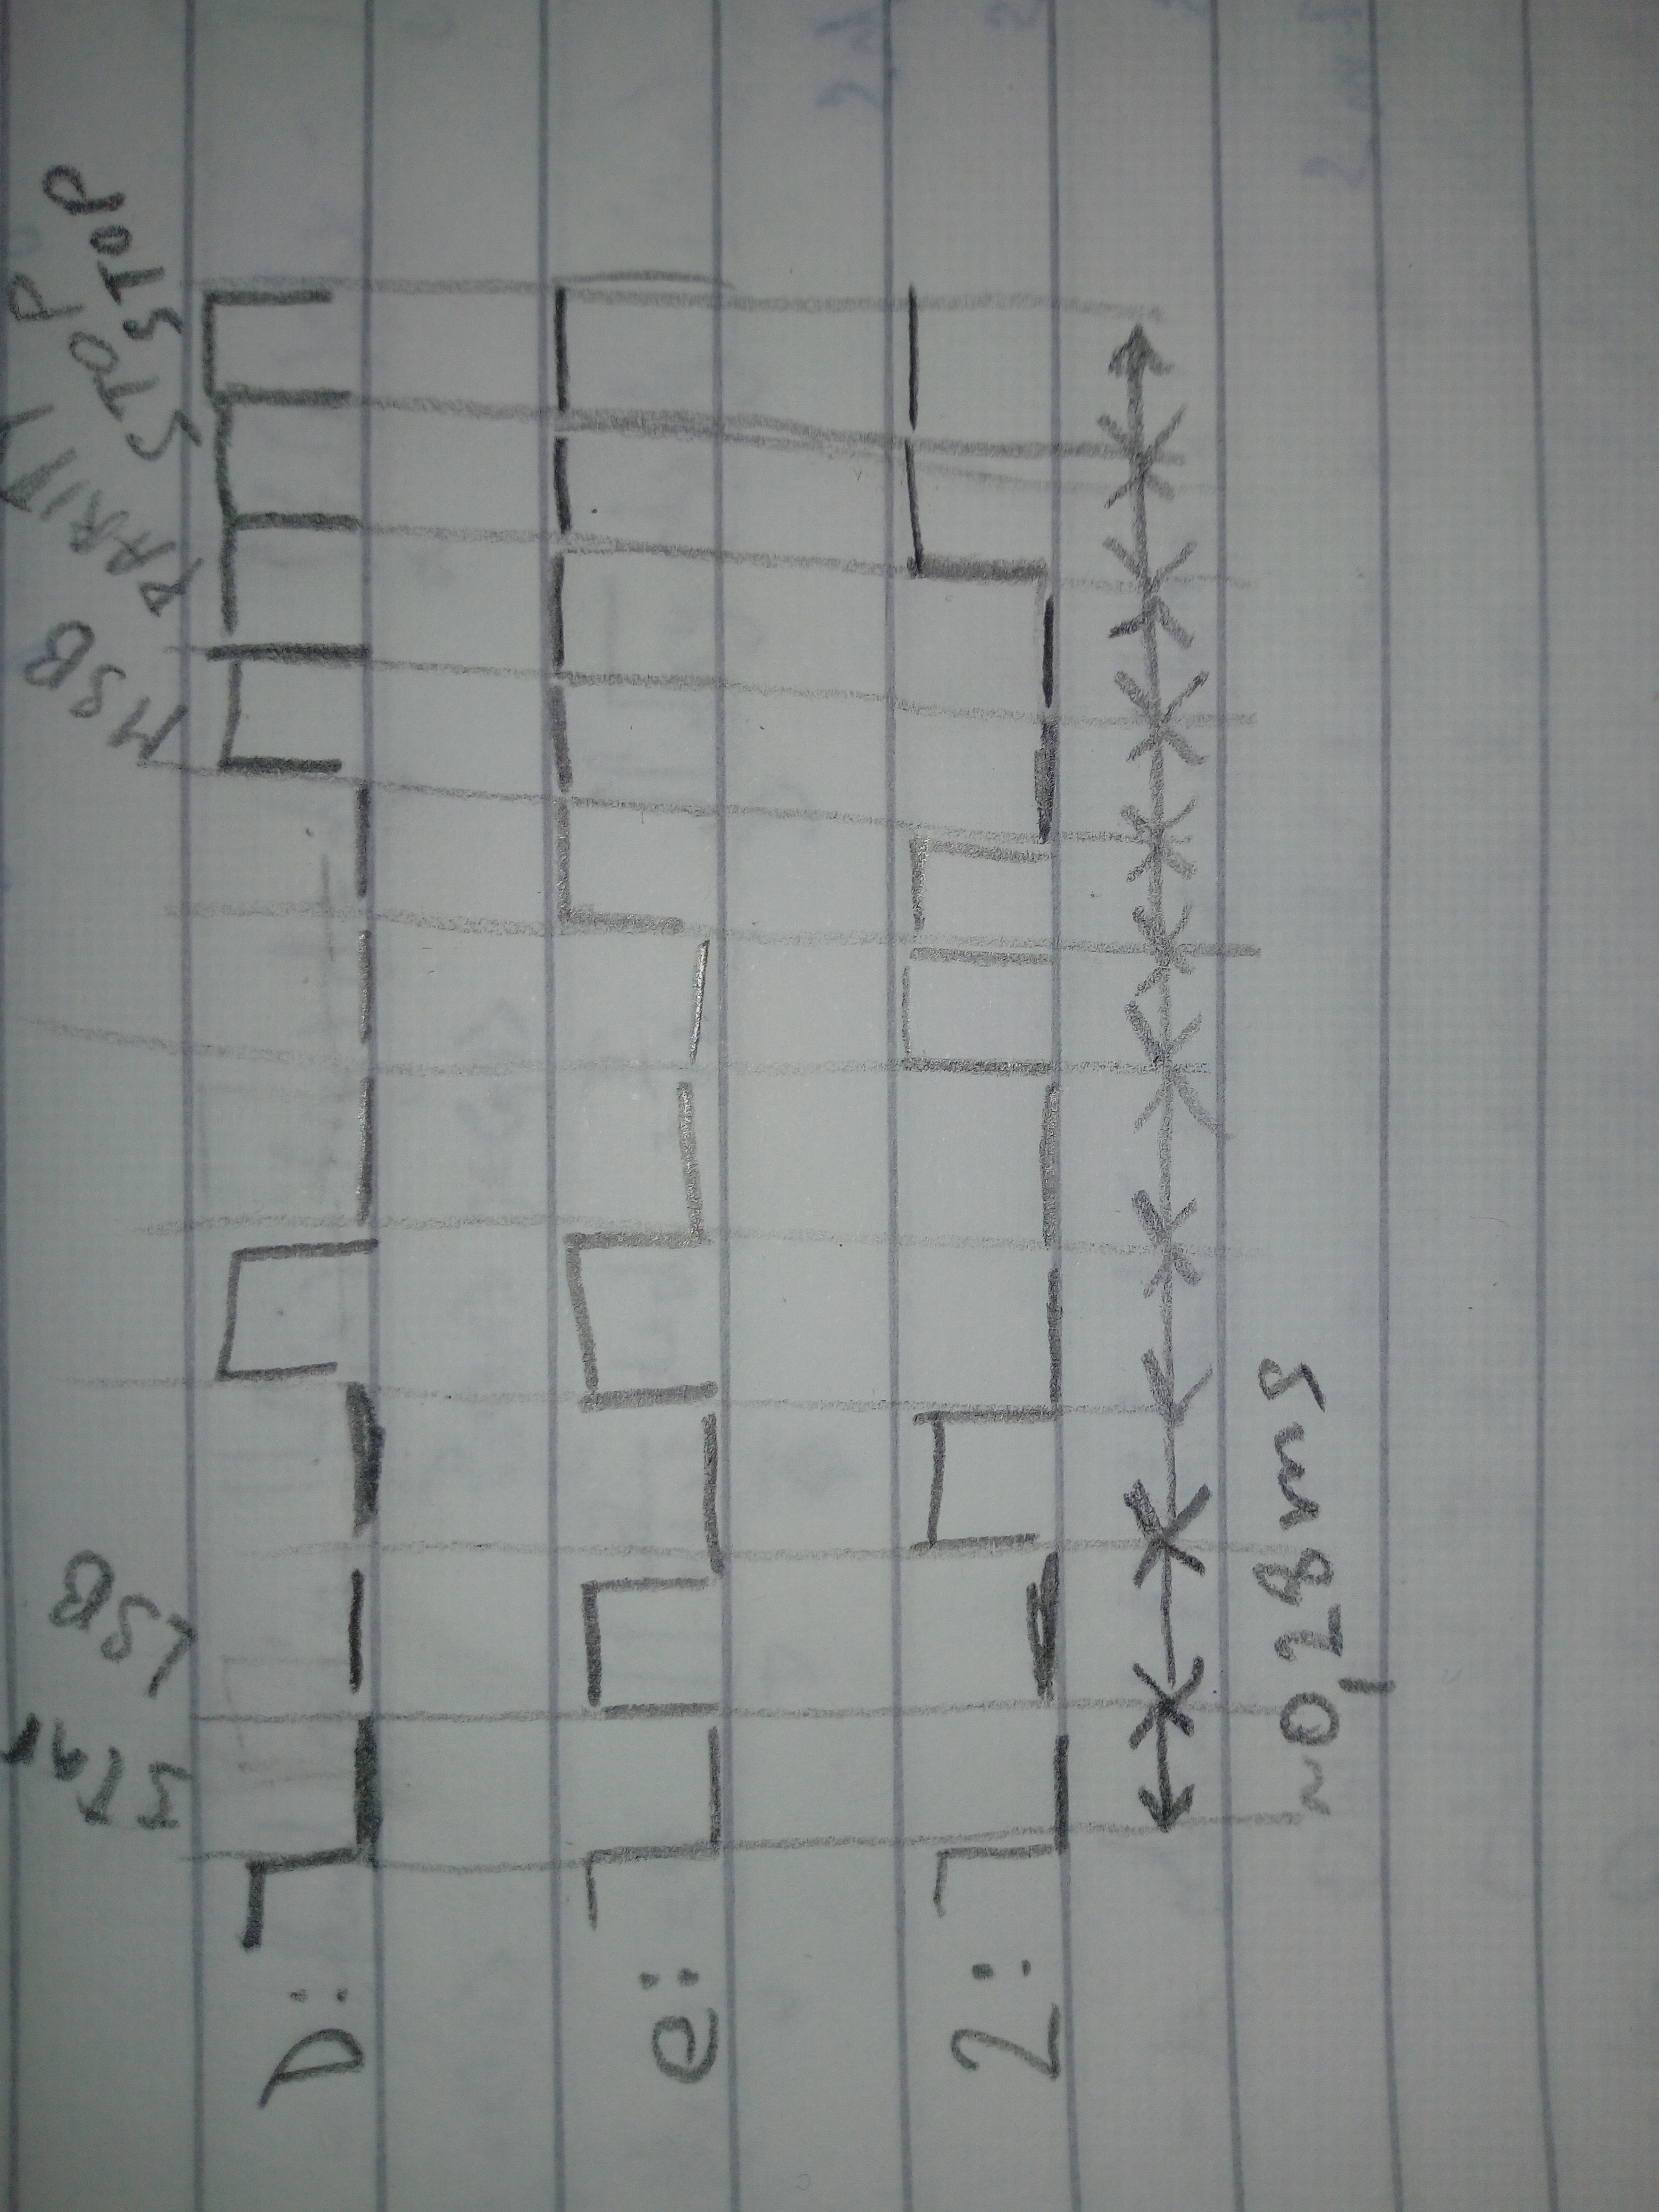 START LSB MSB PARITY STOP STOP
D:
e:
2:
~0,28ms